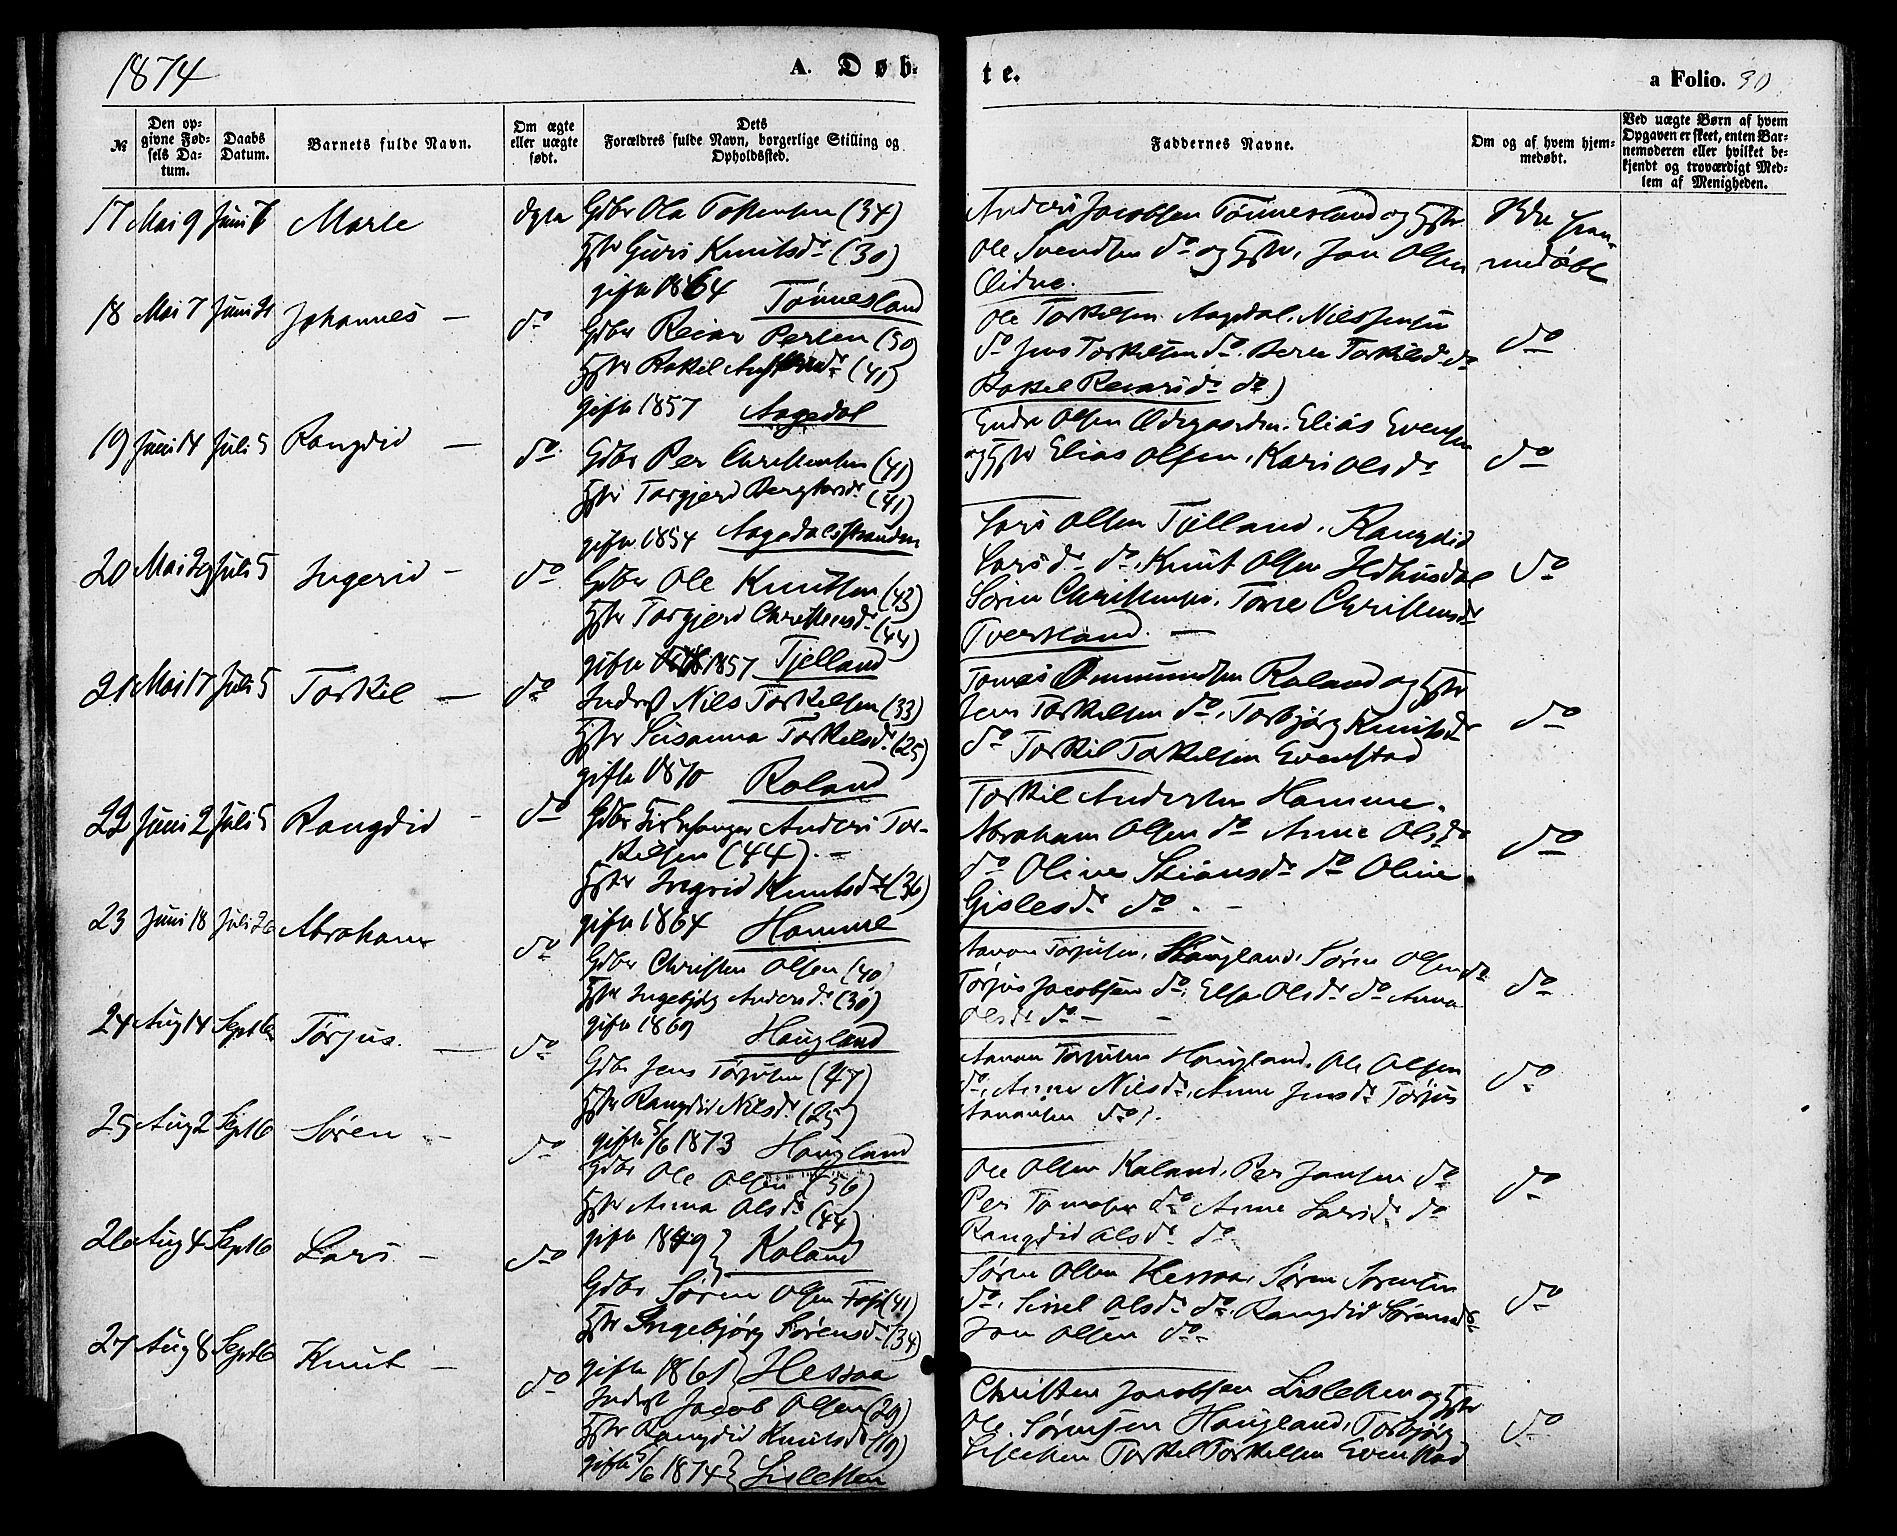 1874
A. Døb-
te.
a Folio. 30
№
Den op-
givne Fød-
sels Da-
tum.
Daabs
Datum.
Barnets fulde Navn.
Om ægte
eller uægte
født.
Dets
Forældres fulde Navn, borgerlige Stilling og
Opholdssted.
Faddernes Navne.
Om og af hvem hjem-
medøbt.
Ved uægte Børn af hvem
Opgaven er skeet, enten Bar-
nemoderen eller hvilket be-
kjendt og troværdigt Med-
lem af Menigheden.
17 Mai 9 Juni 7 Marte
Gdbr Ola (34)
Hstr Guri Knutsdr (30)
gifte 1864 Tønnesland
Anders Jacobsen Tønnesland og Hstr
Ole Svendsen do og Hstr, Jon Olsen
18 Mai 7 Juni 21 Johannes — do
Gdbr Reiar Persen (50
Hstr Rakel (41)
gifte 1857 Aagedal
Ole Torkelsen Aagedal. Nils Jensen
do Jens Torkelsen do. Berte Torkelsdr do
Rakel Reiarsdr do)
do
19 Juni 14 Juli 5 Rangdid — do
Gdbr Per Christensen (41)
Hstr Torgjerd (41)
gifte 1854 Aagedalsstranden
Endre Olsen Ødegaarden. Elias Evensen
og Hstr Elias Olsen, Kari Olsdr
do
20 Mai 29 Juli 5 Ingerid — do
Gdbr Ole Knutsen (43)
Hstr Torgjerd Christensdr (44)
gifte 1857 Tjelland
Lars Olsen Tjelland, Rangdid
Larsdr do, Knut Olsen
Søren Christensen. Tone Christensdr
Tversland. —
do
21 Mai 17 Juli 5 Torkel — do
Inderst Nils Torkelsen (33)
Hstr Susanna Torkelsdr (25)
gifte 1870 Roland
Tomas Ommundsen Roland og Hstr
Jens Torkelsen do, Torbjørg Knutsdr
do Torkil Torkelsen Evenstad
do
22 Juni 2 Juli 5 Rangdid - do
Gdbr Kirkesanger Anders Tor-
kelsen (44). —
Hstr Ingrid Knutsdr (36)
gifte 1864 Homme
Torkil Andersen Homme.
Abraham Olsen do Anne Olsdr
do Olive do Oline
Gislesdr do. —
do
23 Juni 18 Juli 26 Abraham do
Gdbr Christen Olsen (40)
Hstr Ingebjørg Andersdr (30)
gifte 1869 Haugland
Aanon Torjusen, Haugland. Søren Olsen do
Torjus Jacobsen do, Olsdr do Anna
Olsdr do — —
do
24 Aug 14 Sept 6 Torjus. — do
Gdbr Jens Torjusen (47)
Hstr Rangdid Nilsdr (25)
gifte 5/6 1873 Haugland
Aanon Torjusen Haugland. Ole Olsen
do, Anne Nilsdr, Anne Jensdr Torjus
Aanonsen do).
do
25 Aug 2 Sept 6 Søren - do
Gdbr Ole Olsen (56)
Hstr Anna Olsdr (44)
gifte 1849 } Roland
Ole Olsen Roland, Per Jonsen do
Per do Anne Larsdr do
Rangdid Olsdr do.
do
26 Aug 4 Sept 6 Lars — do
Gdbr Søren Olsen (41)
Hstr Ingebjørg Sørensdr (34)
gifte 1861 } Hessaa
Søren Olsen Hessaa, Søren Sørensen
do. Sissel Olsdr do, Rangdid Sørensdr
Jon Olsen do
do
27 Aug 8 Sept 6 Knut — do
Inderst Jacob Olsen (29)
Hstr Rangdid Knutsdr (19)
gifte 5/6 1874 } Lisletten
Christen Jacobsen Lisletten og Hstr
Ole Sørensen Haugland, Torbjørg
Lisletten Torkel Torkelsen Evenstad
do